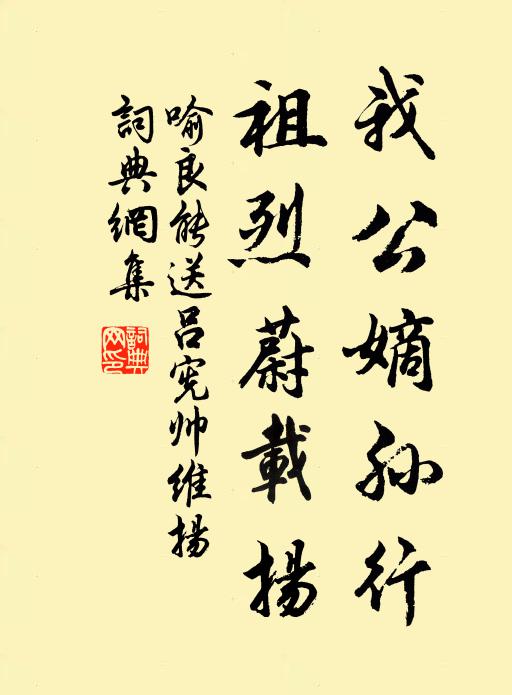 我公嫡孙行
祖烈蔚載揚
喻良能送吕宪帅维揚
詞典網集
詞典网印